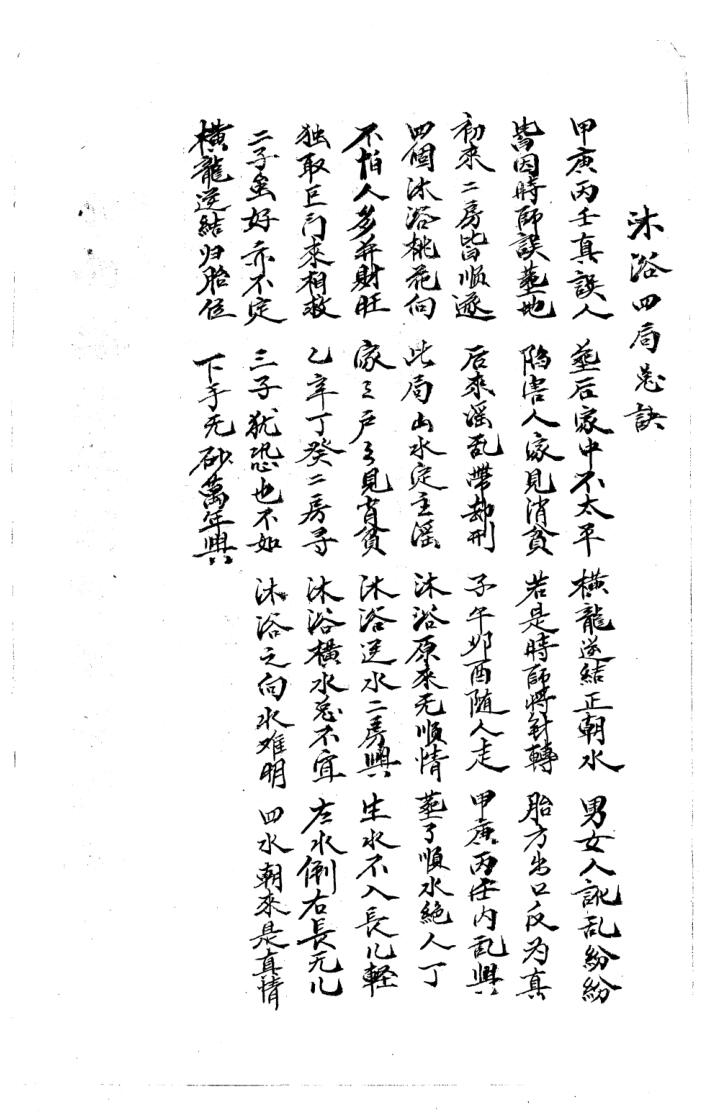 沐浴四局忌訣
甲庚丙壬真誤人 葬后家中不太平 橫龍逆結正朝水 男女入訛乱紛紛
皆因時師誤葬地 陷害人家見消貧 若是時師將針轉 胎方出口反为真
初來二房皆順遂 后來滛乱帶劫刑 子午卯酉随人走 甲庚丙壬内乱興
四個沐浴桃花向 此局山水定主滛 沐浴原來无順情 葬了順水絕人丁
不怕人多并財旺 家々戶々見宵貧 沐浴逆水二房興 生水不入長儿軽
独取巨门來相救 乙辛丁癸二房寻 沐浴橫水忌不宜 左水倒右長无儿
二子虽好亦不定 三子犹恐也不如 沐浴之向水难明 四水朝來是真情
橫龍逆結归胎位 下手无砂萬年興